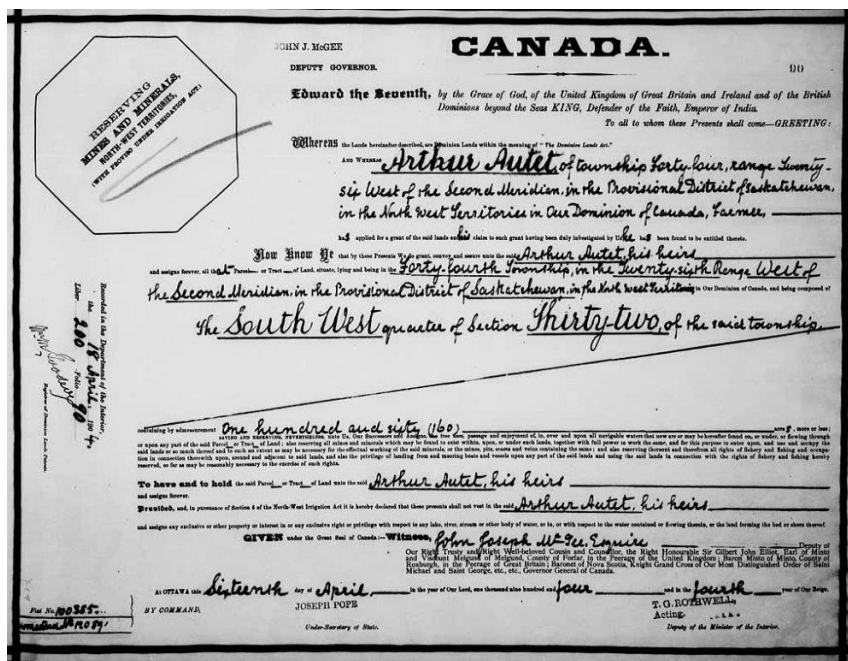 JOHN J. McGEE
DEPUTY GOVERNOR.
CANADA.
90
RESERVING
MINES AND MINERALS,
NORTH-WEST TERRITORIES,
(WITH PROVISO UNDER IRRIGATION ACT)
Edward the Seventh, by the Grace of God, of the United Kingdom of Great Britain and Ireland and of the British
Dominions beyond the Seas KING, Defender of the Faith, Emperor of India.
To all to whom these Presents shall come—GREETING:
Whereas the Lands hereinafter described, are Dominion Lands within the meaning of "The Dominion Lands Act."
AND WHEREAS Arthur Autet, of township Forty-four, range Twenty-
six West of the Second Meridian, in the Provisional District of Saskatchewan,
in the North West Territories in Our Dominion of Canada, Farmer,
has applied for a grant of the said lands and his claim to such grant having been duly investigated by Us he has been found to be entitled thereto.
Now Know Ye that by these Presents We do grant, convey and assure unto the said Arthur Autet, his heirs
and assigns forever, all that Parcel or Tract of Land, situate, lying and being in the Forty-fourth Township, in the Twenty-sixth Range West of
the Second Meridian, in the Provisional District of Saskatchewan, in the North West Territories in Our Dominion of Canada, and being composed of
The South West quarter of Section Thirty-two, of the said township
containing by admeasurement One hundred and sixty (160) acres, more or less;
SAVING AND RESERVING, NEVERTHELESS, unto Us, Our Successors and Assigns, the free uses, passage and enjoyment of, in, over and upon all navigable waters that now are or may be hereafter found on, or under, or flowing through
or upon any part of the said Parcel or Tract of Land; also reserving all mines and minerals which may be found to exist within, upon, or under such lands, together with full power to work the same, and for this purpose to enter upon, and use and occupy the
said lands or so much thereof and to such an extent as may be necessary for the effectual working of the said minerals, or the mines, pits, seams and veins containing the same; and also reserving thereout and therefrom all rights of fishery and fishing and occupa-
tion in connection therewith upon, around and adjacent to said lands, and also the privilege of landing from and mooring boats and vessels upon any part of the said lands and using the said lands in connection with the rights of fishery and fishing hereby
reserved, so far as may be reasonably necessary to the exercise of such rights.
To have and to hold the said Parcel or Tract of Land unto the said Arthur Autet, his heirs
and assigns forever.
Provided, and, in pursuance of Section 5 of the North-West Irrigation Act it is hereby declared that these presents shall not vest in the said Arthur Autet, his heirs
and assigns any exclusive or other property or interest in or any exclusive right or privilege with respect to any lake, river, stream or other body of water, or in, or with respect to the water contained or flowing therein, or the land forming the bed or shore thereof
GIVEN under the Great Seal of Canada—Witness, John Joseph McGee, Esquire Deputy of
Our Right Trusty and Right Well-beloved Cousin and Counsellor, the Right Honourable Sir Gilbert John Elliot, Earl of Minto
and Viscount Melgund of Melgund, County of Forfar, in the Peerage of the United Kingdom; Baron Minto of Minto, County of
Roxburgh, in the Peerage of Great Britain; Baronet of Nova Scotia, Knight Grand Cross of Our Most Distinguished Order of Saint
Michael and Saint George, etc., etc., Governor General of Canada.
At OTTAWA this Sixteenth day of April, in the year of Our Lord, one thousand nine hundred and four and in the fourth year of Our Reign.
BY COMMAND,
JOSEPH POPE
Under-Secretary of State.
T. G. ROTHWELL,
Acting
Deputy of the Minister of the Interior.
Recorded in the Department of the Interior,
the 18 April, 1904.
Liber 260 Folio 90
Registrar of Dominion Lands Patents.
Fiat No. 100385
Homestead No. 12089